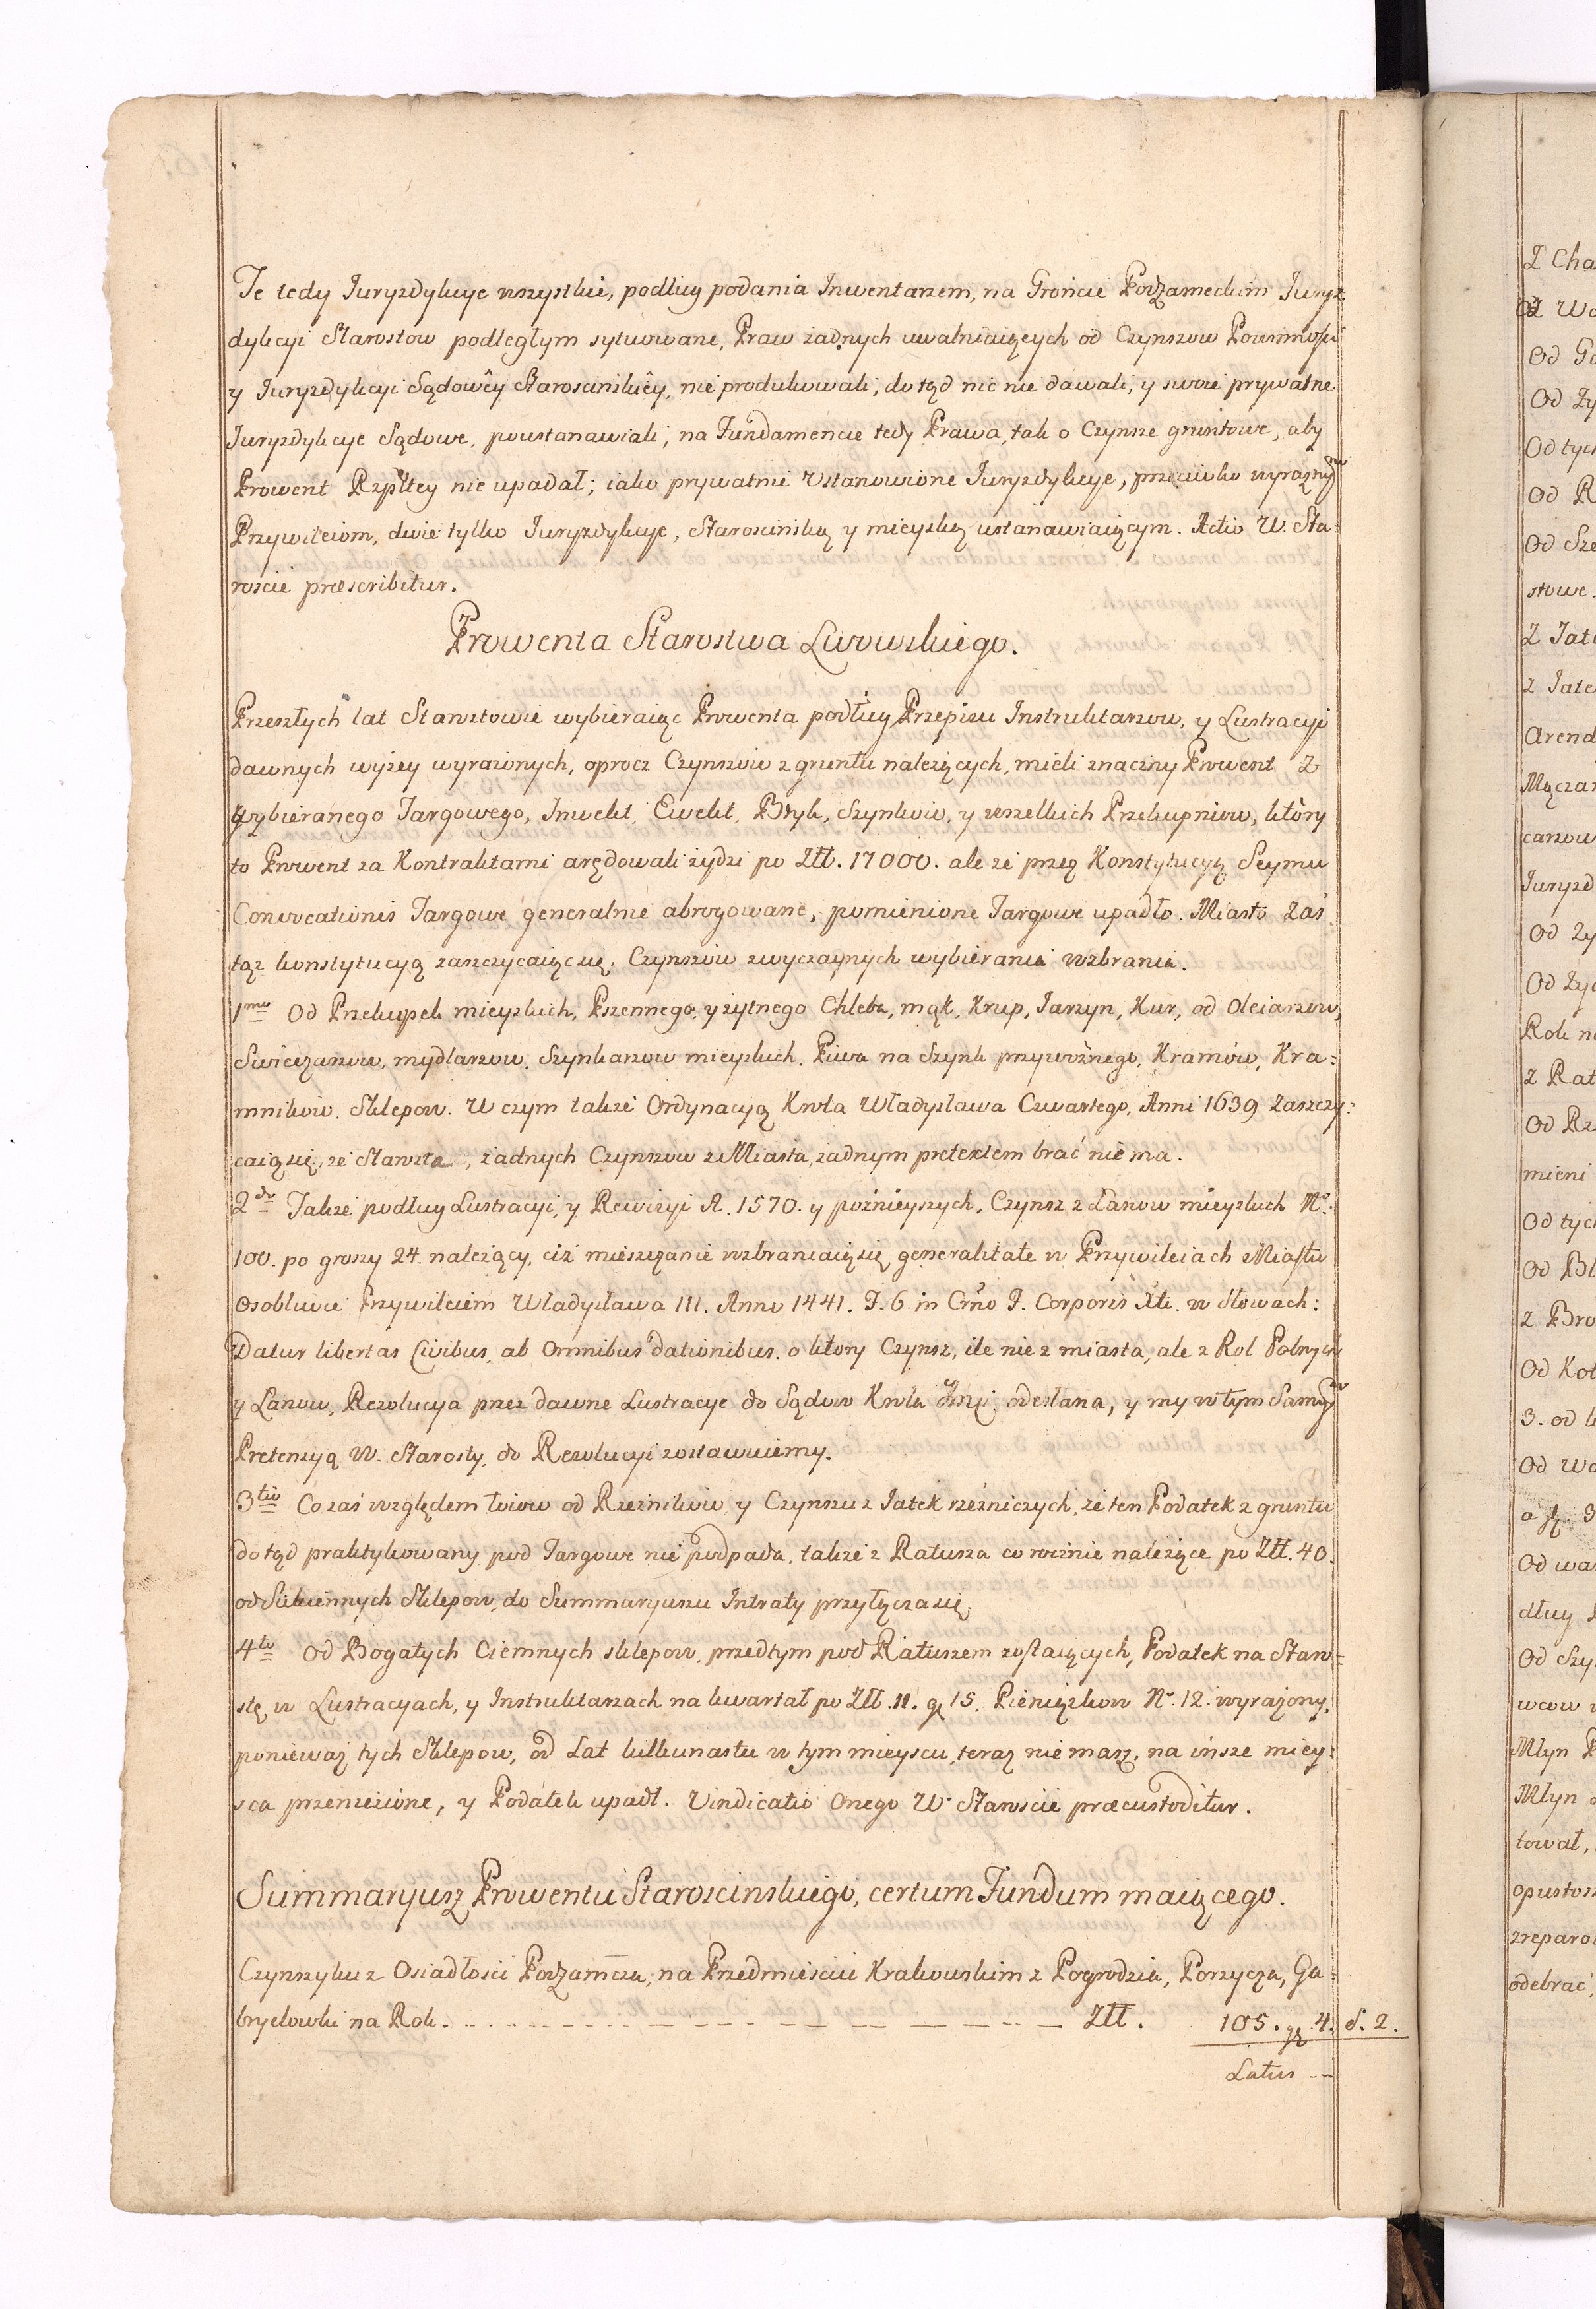 Te tedy Juryzdykcye wszystkie, podług podania Inwentarzem, na Gróncie Podzameckim Juryz-
dykcyi Starostow podległym sytuowane, Praw żadnych uwalniaiących od Czynszow Powinnosci
y Juryzdykcyi Sądowêy Starościnskiêy, nie produkowali, do tąd nic nie dawali, y swoie prywatne
Juryzdykcye Sądowe, poustanawiali, na Fundamencie tedy Prawa, tak o Czynsze gruntowe, aby
Prowent Rzpltey nie upadał; iako prywatnie Ustanowione Juryzdykcye, przeciwko wyraznym
Przywileiom, dwie tylko Juryzdykcye, Starościnską y mieyską ustanawiaiącym. Actio W. Sta:
roscie præscribitur.
Prowenta Starostwa Lwowskiego.
Przeszłych lat Starostowie wybieraiąc Prowenta podług Przepisu Instruktarzow, y Lustracyi
dawnych wyżey wyrażonych, oprocz Czynszów z gruntu należących, mieli znaczny Prowent z
wybieranego Targowego, Inwekt, Ewekt, Bdyk, Szynków, y wszelkich Przekupniow, który
to Prowent za Kontraktami arędowali żydzi po Złł. 17000. ale że przez Konstytucyą Seymu
Convocationis Targowe generalnie abrogowane, pomienione Targowe upadło. Miasto zaś
tąż konstytucyą zaszczycaiąc się, Czynszów zwyczaynych wybierania wzbrania.
1mo Od Przekupek mieyskich, Pszennego, y żytnego Chleba, mąk, Krup, Jarzyn, Kur, od Oleiarzow,
Swieczarzow, mydlarzow, Szynkarzow mieyskich. Piwa na Szynk przywoźnego, Kramów, Kra:
mnikow, Sklepow. W czym także Ordynacyą Króla Władysława Czwartego, Anni 1639 zaszczy:
caią się, że Starosta, żadnych Czynszow z Miasta, żadnym pretextem brać nie ma.
2do Także podług Lustracyi, y Rewizyi A. 1570. y poźnieyszych, Czynsz z Łanow mieyskich No.
100. po groszy 24. należący, ciż mieszczanie wzbraniaią się generalitate w Przywileiach Miastu
osobliwie Przywileiem Władysława III. Anno 1441. F. 6. in Crño F. Corporis Xti. w słowach:
Datur libertas Civibus, ab Omnibus dationibus. o ktory Czynsz, ile nie z miasta, ale z Rol Polnych
y Lanow, Rezolucya przez dawne Lustracye do Sądow Króla Jmci odesłana, y my w tym Samym
Pretensyą W. Starosty, do Rezolucyi zostawuiemy.
3tio Co zaś względem łoiow od Rzeźnikow, y Czynszu z Jatek rzeźniczych, że ten Podatek z gruntu
do tąd praktykowany pod Targowe nie podpada, także z Ratusza co rocznie należące po Złł. 40.
od Sukiennych Sklepow, do Summaryuszu Intraty przyłącza się.
4to Od Bogatych Ciemnych sklepow, przedtym pod Ratuszem zostaiących, Podatek na Staro=
stę w Lustracyach, y Instruktarzach na kwartał po Złł. 11. gr 15. Pieniążkow No. 12. wyrażony,
ponieważ tych Sklepow, od Lat kilkunastu w tym mieyscu, teraz nie masz, na insze miey:
sca przenieżione, y Podatek upadł. Vindicatio onego W. Staroscie præcustoditur.
Summaryusz Prowentu Staroscinskiego, certum Fundum maiącego.
Czynszyku z Osiadłosci Podzamcza, na Przedmieściu Krakowskim z Pogrodzia, Porzycza, Ga-
bryelowki na Rok. Złł. 105. gr 4. d. 2.
Latus --